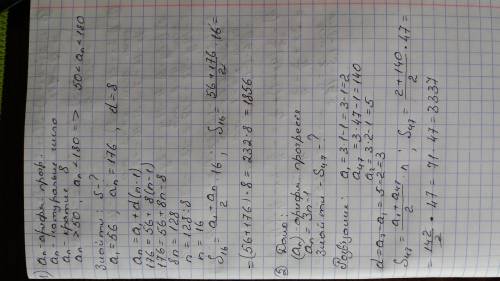 1) an - арифм. прогр.
an - натуральне число
an - кратне 8
an > 50, an < 180 => 50 < an < 180
Знайти: S - ?
a1 = 56, an = 176, d = 8
an = a1 + d(n-1)
176 = 56 + 8(n-1)
176 = 56 + 8n - 8
8n = 128
n = 128 : 8
n = 16
S16 = a1 + an / 2 · 16; S16 = 56 + 176 / 2 · 16 =
= (56 + 176) · 8 = 232 · 8 = 1856
2) Дано:
(an) - арифм. прогресія
an = 3n - 1
Знайти: S47 - ?
Розв'язання:
a1 = 3·1 - 1 = 3 - 1 = 2
a47 = 3·47 - 1 = 140
a2 = 3·2 - 1 = 5
d = a2 - a1 = 5 - 2 = 3
S47 = a1 + a47 / 2 · n; S47 = 2 + 140 / 2 · 47 =
= 142 / 2 · 47 = 71 · 47 = 3337